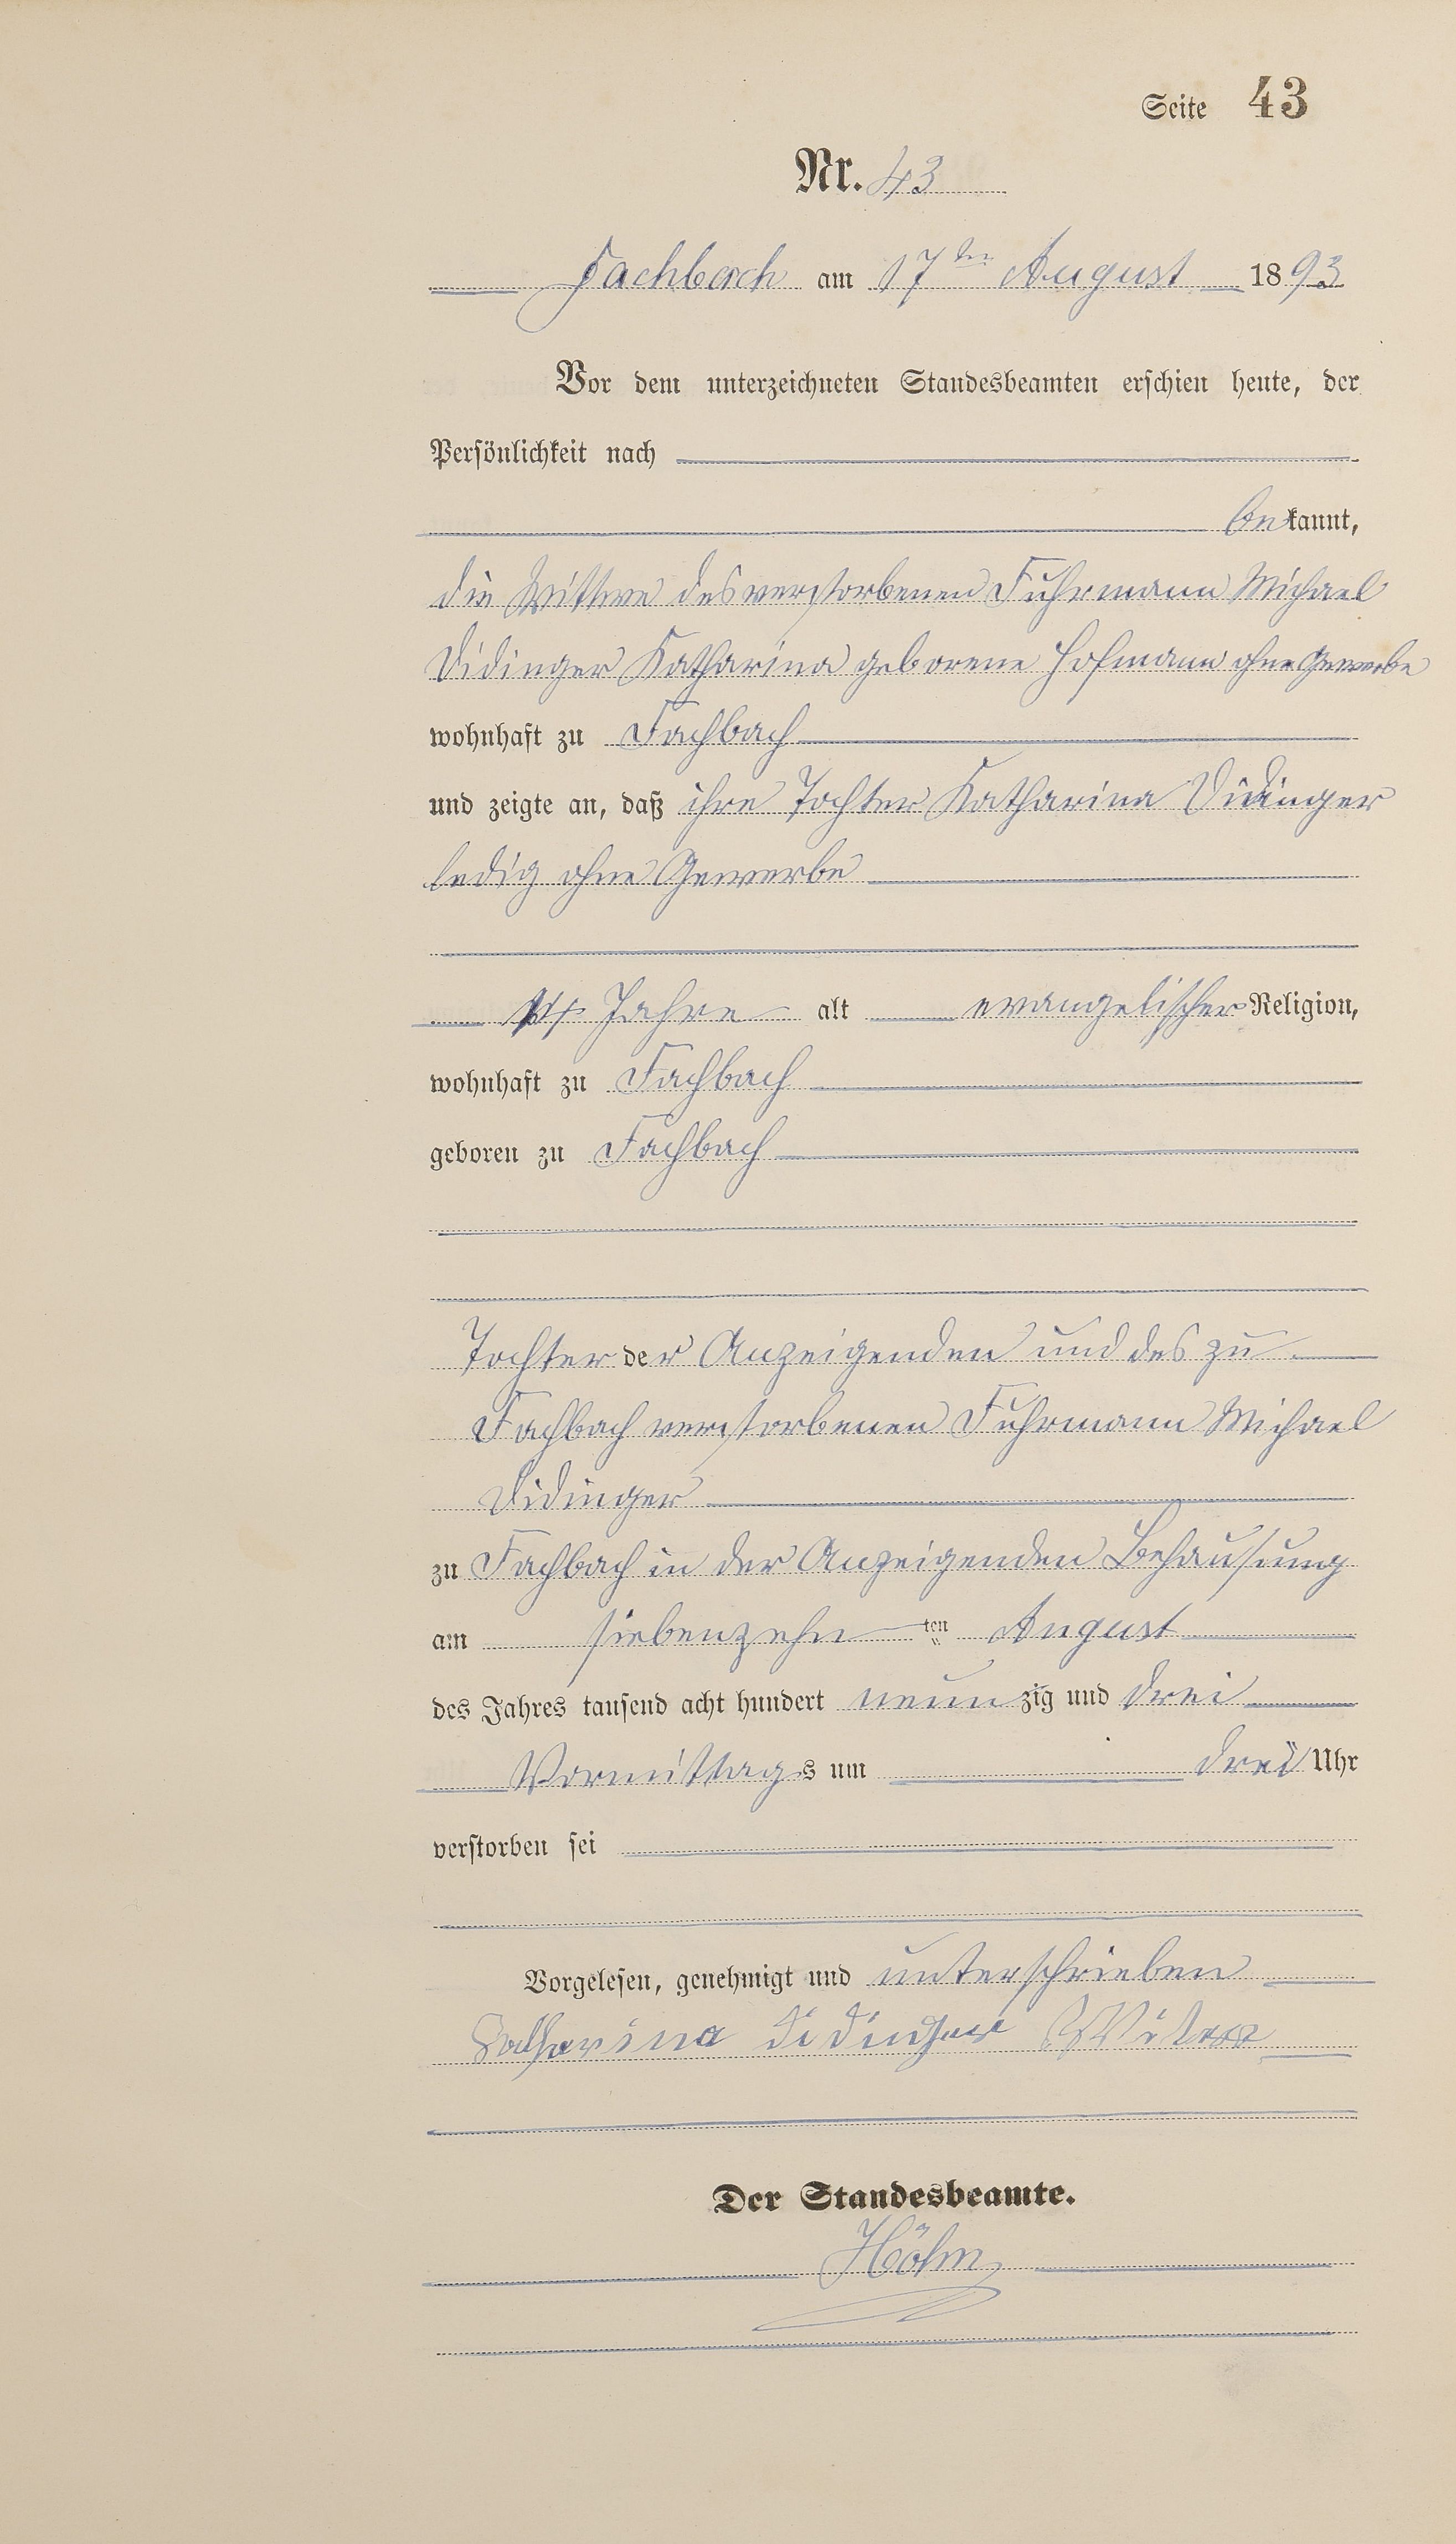 Seite 43
Nr. 43
Fachbach am 17ten August 1893
Vor dem unterzeichneten Standesbeamten erschien heute, der
Persönlichkeit nach
bekannt,
die Wittwe des verstorbenen Fuhrmann Michael
Didinger Katharina geborene Hofmann ohne Gewerbe
wohnhaft zu Fachbach
und zeigte an, daß ihre Tochter Katharina Didinger
ledig ohne Gewerbe
Jahre alt evangelischer Religion,
wohnhaft zu Fachbach
geboren zu Fachbach
Tochter der Anzeigenden und des zu
Fachbach verstorbenen Fuhrmann Michael
Didinger
zu Fachbach in der Anzeigenden Behausung
am siebenzehnten August
des Jahres tausend acht hundert neunzig und drei
Vormittags um drei Uhr
verstorben sei
Vorgelesen, genehmigt und unterschrieben
Katharina Didinger
Der Standesbeamte.